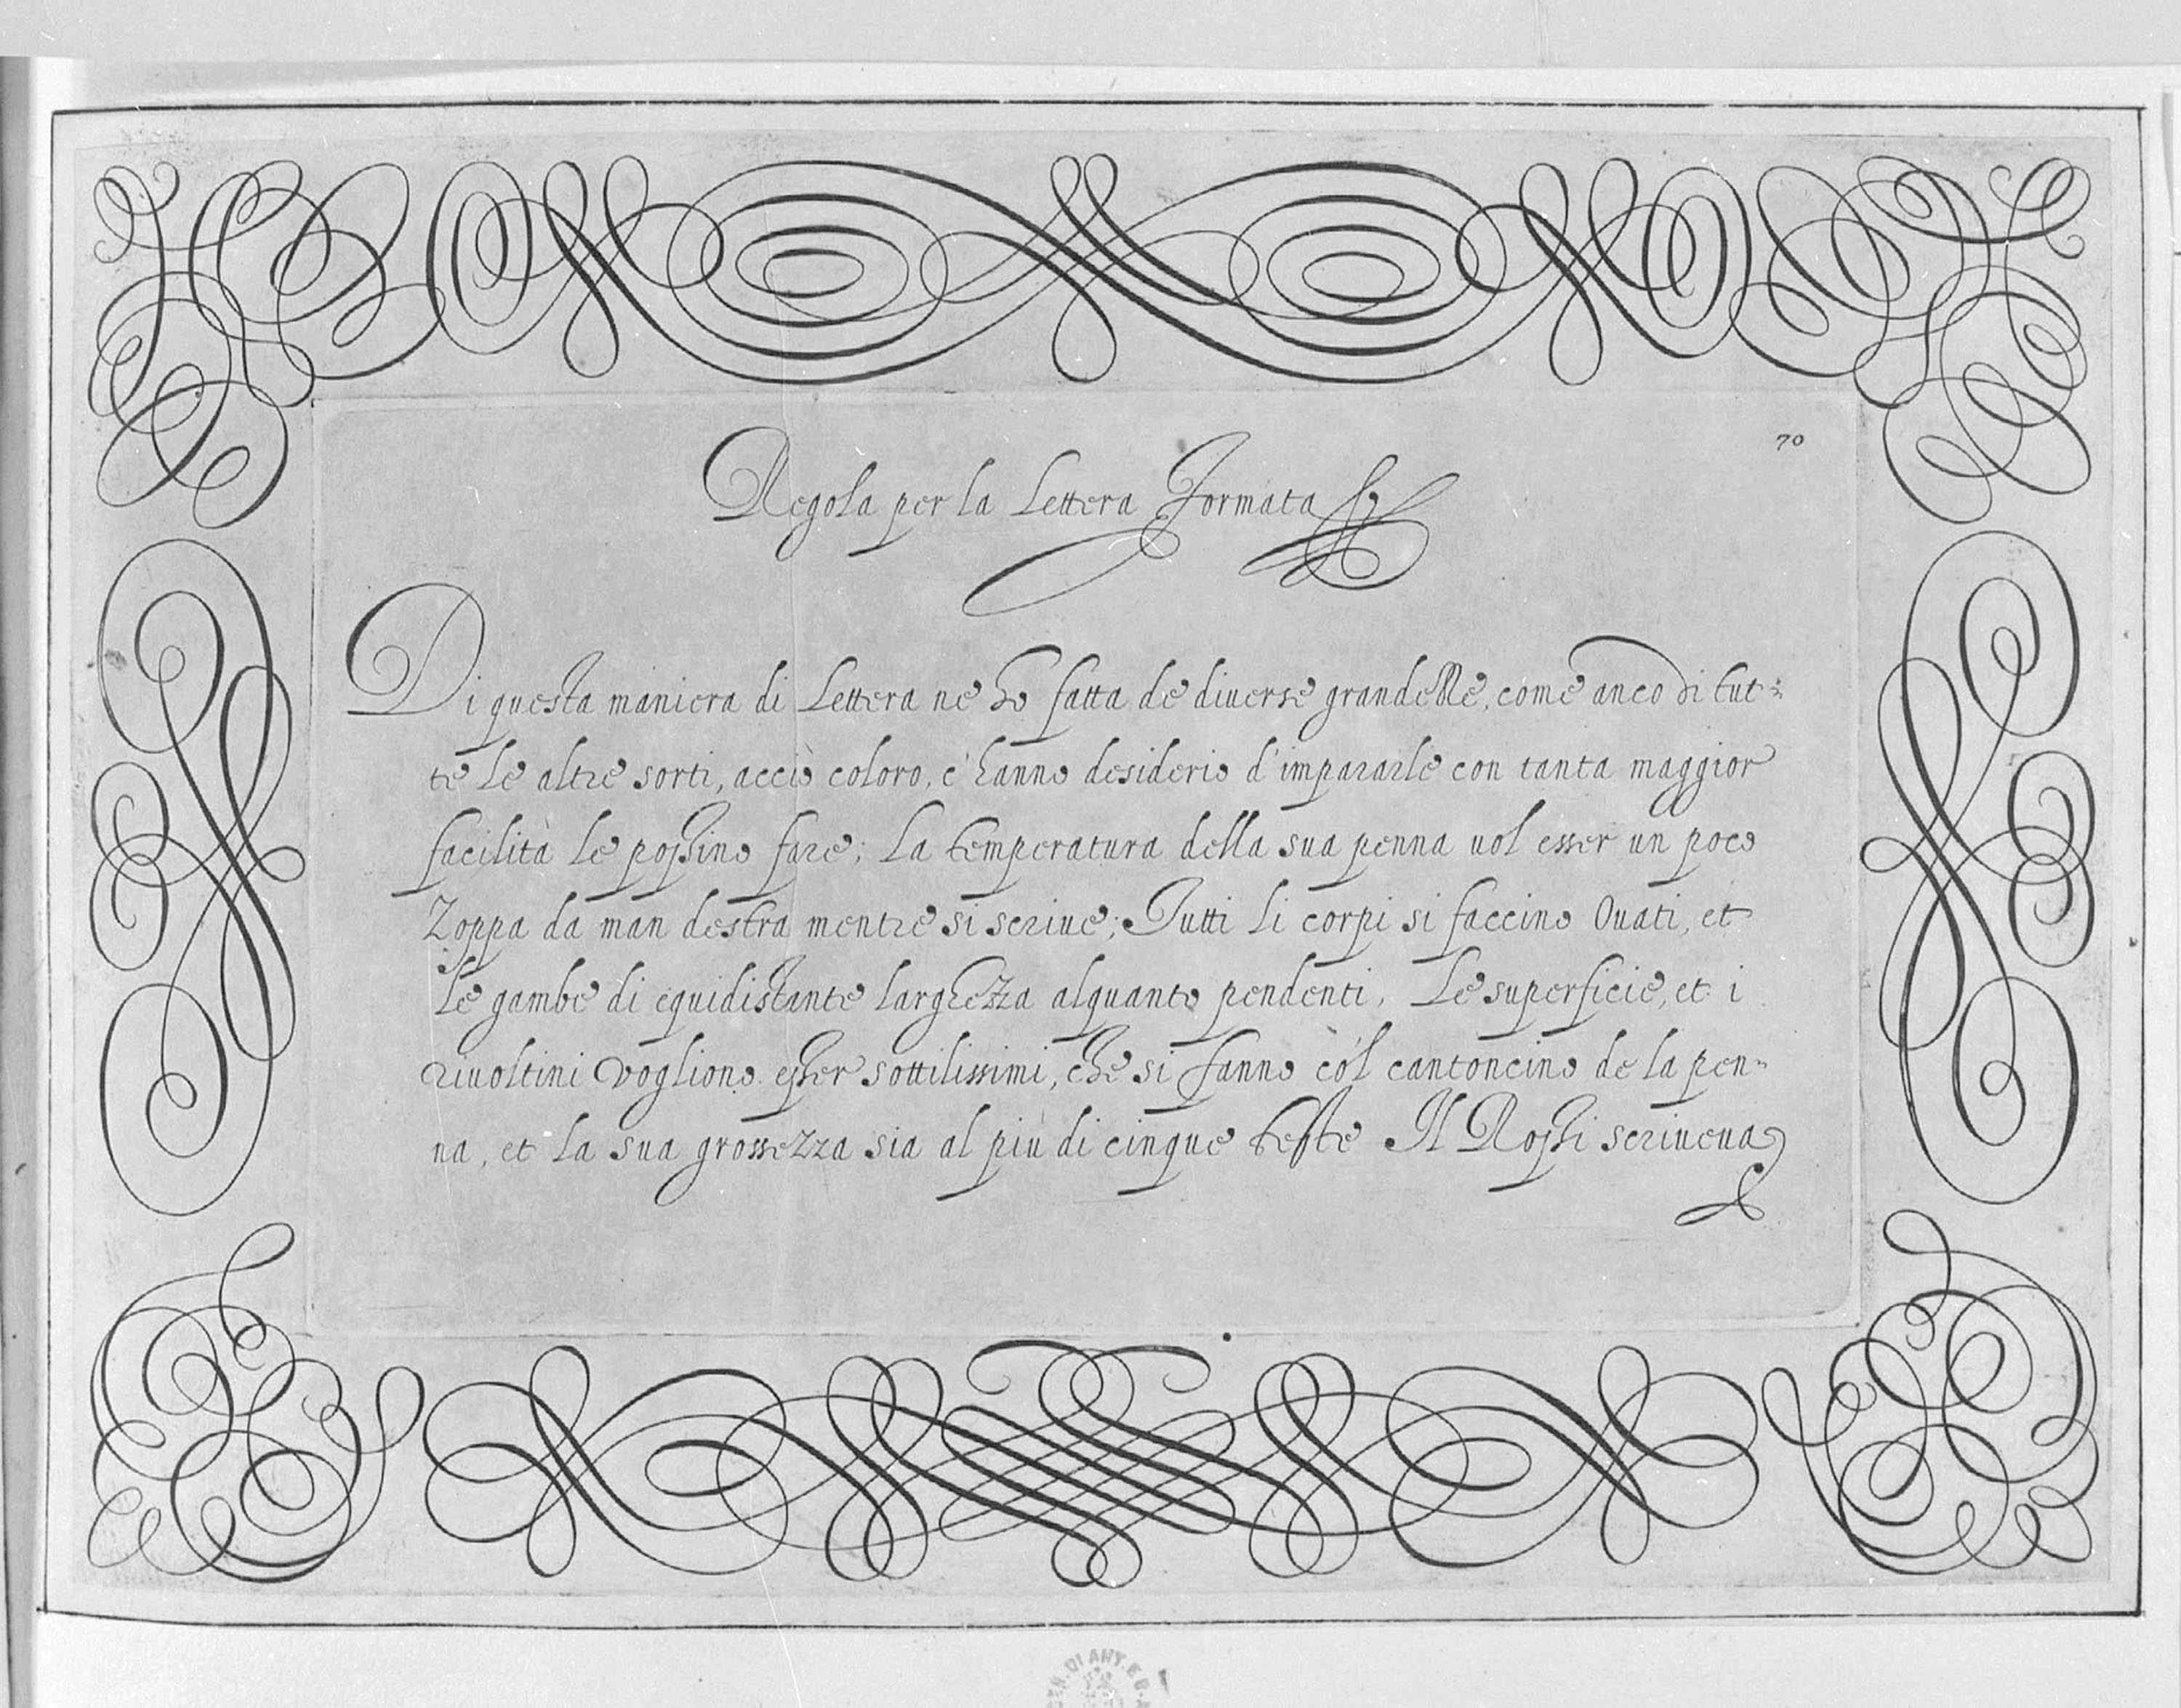 70
Regola per la Lettera Formata
Di questa maniera di Lettera ne ho fatta de diuerse grandezze, come anco di tut-
te le altre sorti, acciò coloro, c'hanno desiderio d'impararle con tanta maggior
facilità le possino fare; La temperatura della sua penna uol esser un poco
Zoppa da man destra mentre si scriue; Tutti li corpi si faccino Ouati, et
le gambe di equidistante larghezza alquanto pendenti. Le superficie, et i
riuoltini vogliono esser sottilissimi, che si fanno co'l cantoncino de la pen-
na, et la sua grossezza sia al più di cinque teste Il Rossi scriueua